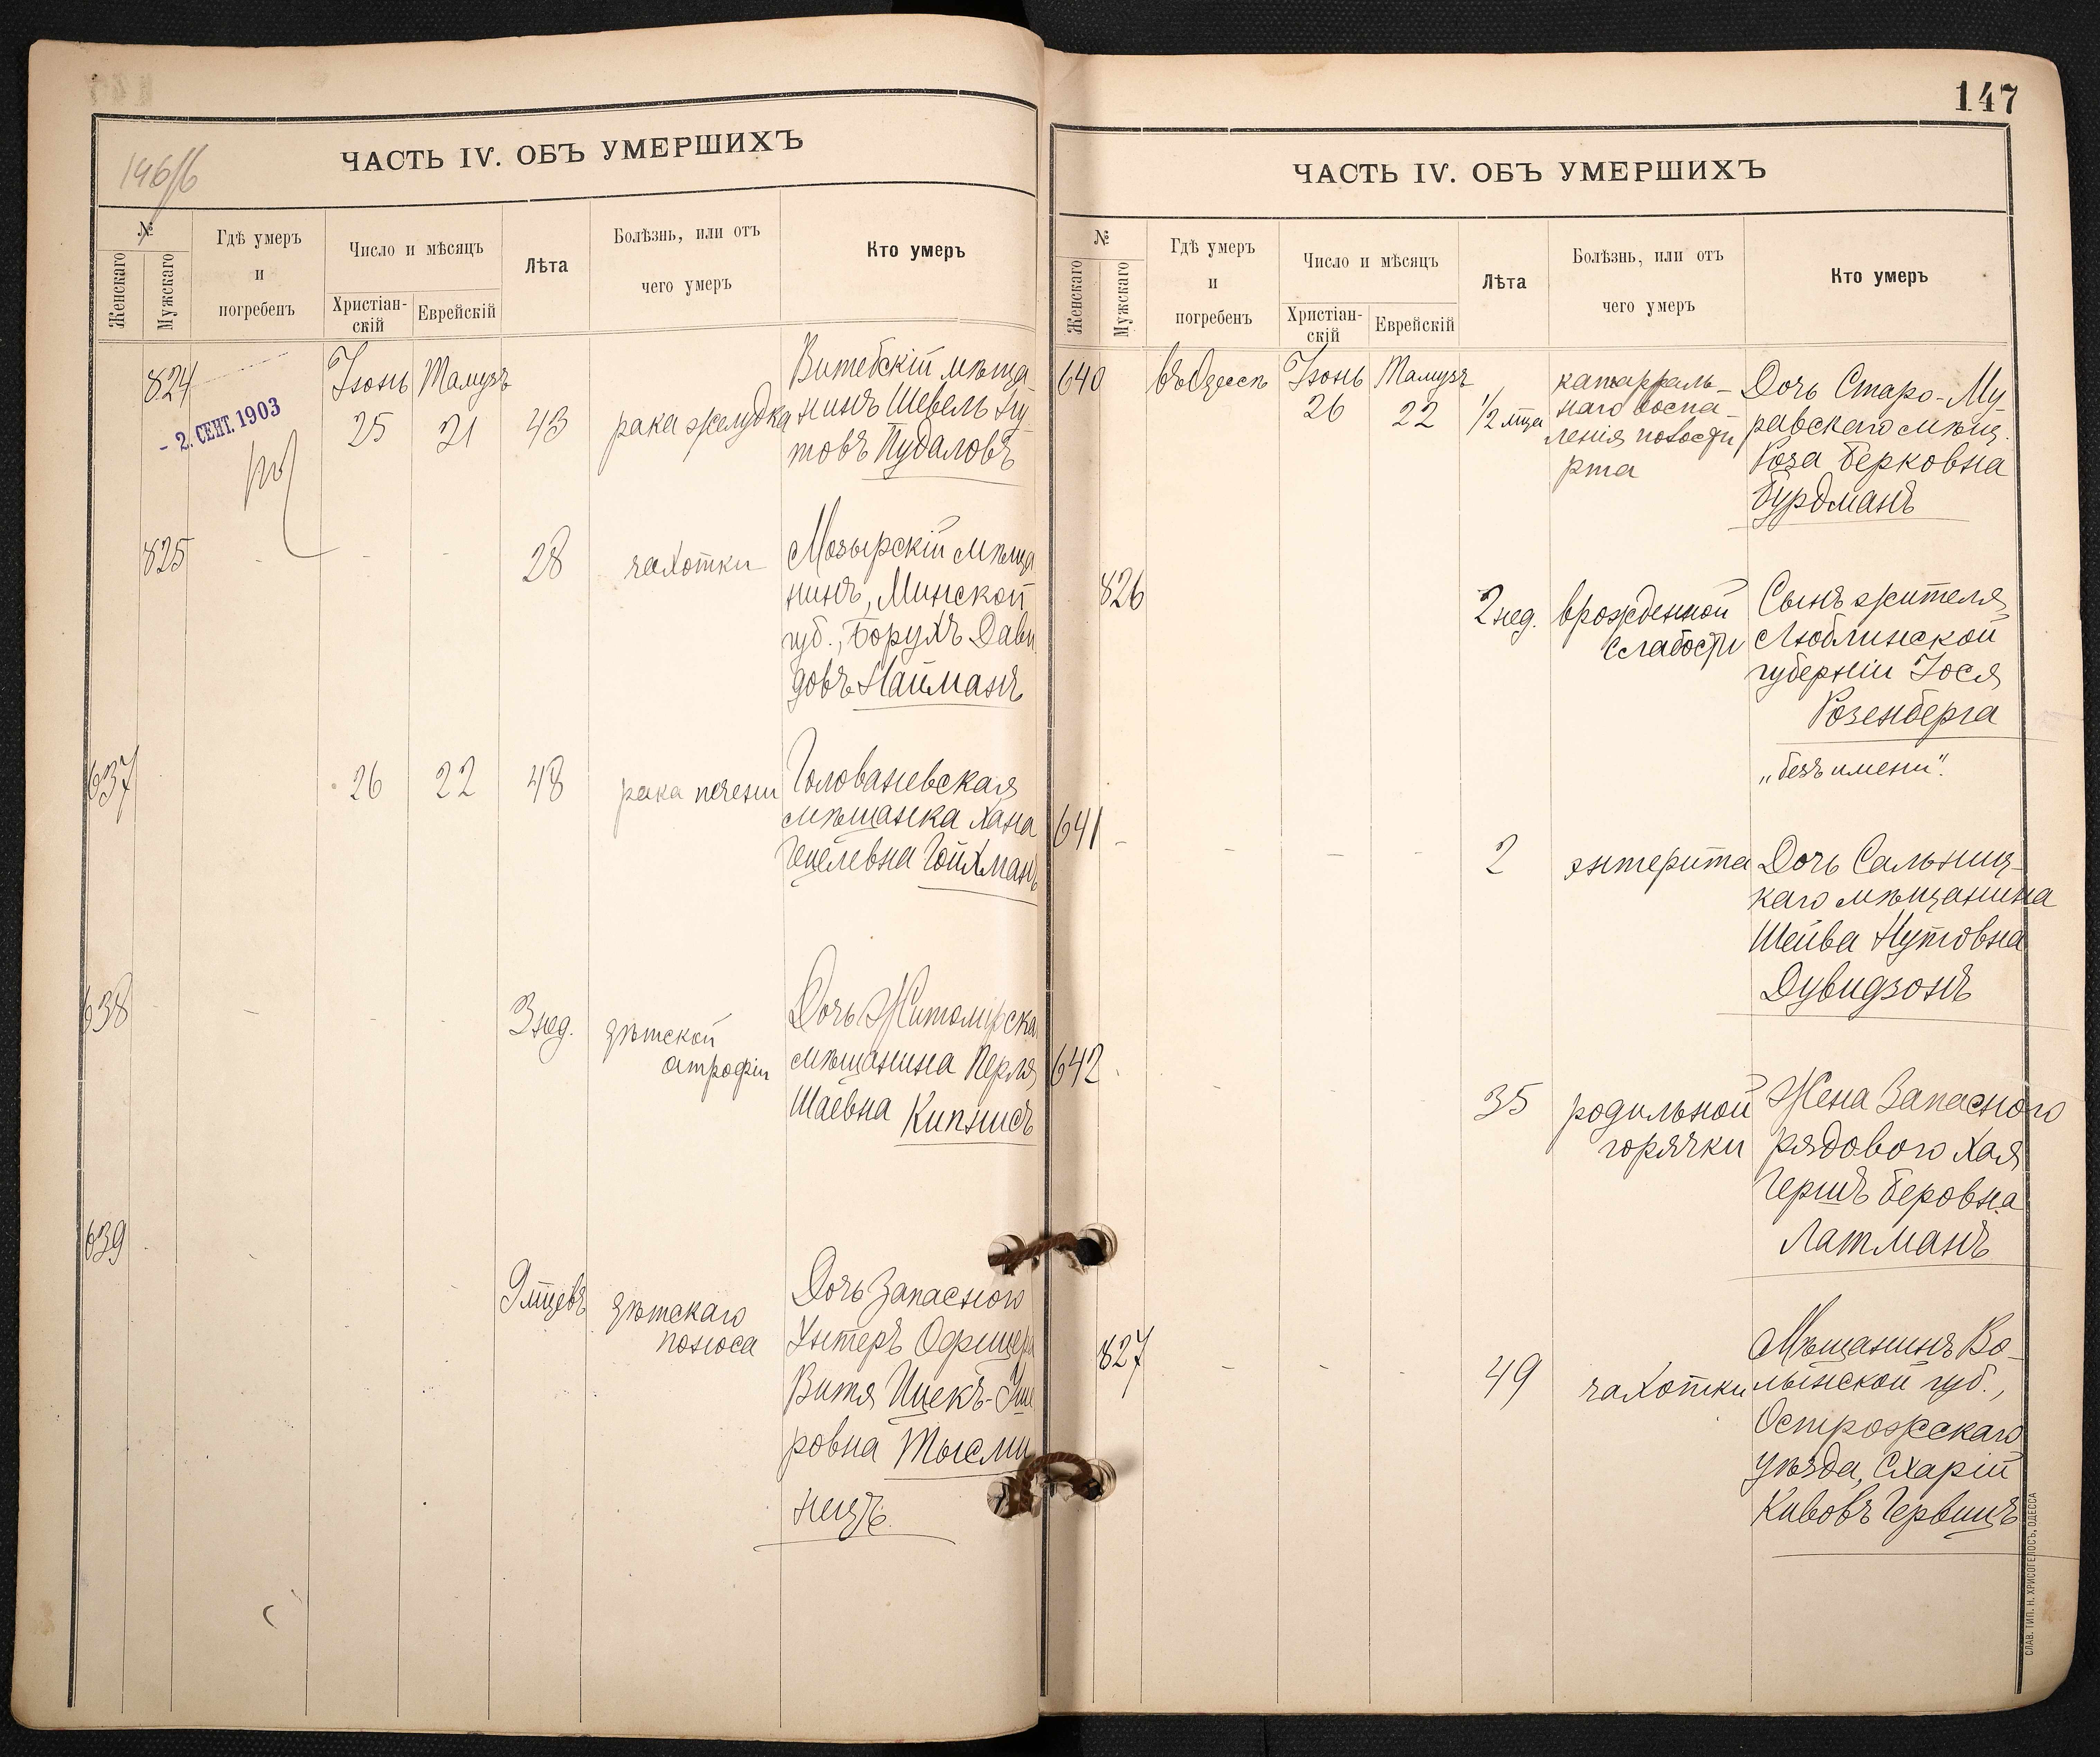 146/б
ЧАСТЬ IV. ОБЪ УМЕРШИХЪ
№
Женскаго
Мужскаго
Гдѣ умеръ
и
погребенъ
Число и мѣсяцъ
Христіан-
скій
Еврейскій
Лѣта
Болѣзнь, или отъ
чего умеръ
Кто умеръ
824
- 2. СЕНТ. 1903
Іюнь
25
Тамузъ
21
43
рака желудка
Витебскій мѣща
нинъ Шевель Ну
товъ Пудаловъ
825
28
чахотки
Мозырскій мѣща
нинъ, Минской
губ., Борухъ Дави
довъ Найманъ
637
26
22
48
рака печени
Голованевская
мѣщанка Хана
Гецелевна Гойхманъ
638
3 нед.
дѣтской
атрофіи
Дочь Житомірска
мѣщанина Перля
Шаевна Кипнисъ
639
9 мцевъ
дѣтскаго
поноса
Дочь Запасного
Унтеръ Офицера
Витя Ицекъ-
ровна Тысми
ницъ
147
ЧАСТЬ IV. ОБЪ УМЕРШИХЪ
№
Женскаго
Мужскаго
Гдѣ умеръ
и
погребенъ
Число и мѣсяцъ
Христіан-
скій
Еврейскій
Лѣта
Болѣзнь, или отъ
чего умеръ
Кто умеръ
640
въ Одессѣ
Іюнь
26
Тамузъ
22
1/2 мца
катарраль-
наго воспа-
ленія полости
рта
Дочь Старо-Му
равскаго мѣщ.
Роза Берковна
Бурдманъ
826
2 нед.
врожденной
слабости
Сынъ жителя
Люблинской
губерніи Іося
Розенберга
„безъ имени".
641
2
энтерита
Дочь Сальниц-
каго мѣщанина
Шейва Нутовна
Дувидзонъ
642
35
родильной
горячки
Жена Запасного
рядового Хая
Гершъ Беровна
Латманъ
827
49
чахотки
Мѣщанинъ Во-
лынской губ.,
Острожскаго
уѣзда, Схарій
Кивовъ Гервицъ
СЛАВ. ТИП. Н. ХРИСОГЕЛОСЪ, ОДЕССА